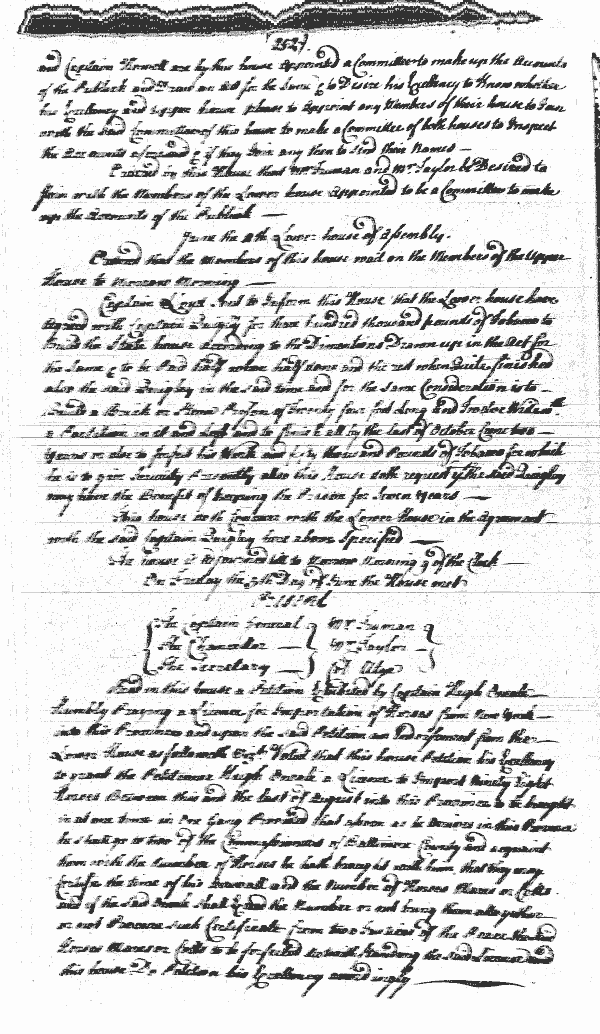 252
and Captain Howell are by this house Appointed a Committee to make up the Accounts
of the Publick and Draw an Act for the same & to Desire his Excellency to Know whether
his Excellency and upper house please to Appoint any Members of their house to Joine
with the said Committee of this house to make a Committee of both houses to Inspect
the Accounts aforesaid & if they Join any then to Send their Names
Ordered by this House that Mr Truman and Mr Taylor be Desired to
Joine with the Members of the Lower house Appointed to be a Committee to make
up the Accounts of the Publick
June the 4th Lower house of Assembly.
Ordered that the Members of this house wait on the Members of the Upper
House to Morrow Morning
Captain Lloyd Sent to Inform this House that the Lower house have
Agreed with Captain Quigley for three hundred thousand pounds of Tobacco to
build the State house According to the Dimentions Drawn up in the Act for
the Same & to be Paid half when half done and the rest when Quite finished
also the said Quigley in the said time and for the Same Consideration is to
Build a Brick or Stone Prison of Twenty four foot Long and Twelve Wide with
a Partition in it and Loft and to finish all by the last of October Come two
Years or else to forfeit his Work and fifty thousand Pounds of Tobacco for which
he is to give Security Presently also this House doth request that the said Quigley
may have the Benefit of keeping the Prison for Seven Years
This house doth Concurr with the Lower House in the Agreement
with the said Captain Quigley here above Specified
The house is Adjourned till to Morrow Morning 9 of the Clock
On Friday the 5th Day of June the House met
Present
The Captain General Mr Truman
The Chancellor Mr Taylor
The Secretary Col Utye
Read in this house a Petition Exhibited by Captain Hugh Oneale
Humbly Praying a Licence for Importation of Horses from New York
into this Province and upon the said Petition an Indorsement from the
Lower House as followeth Vizt. Voted that this house Petition his Excellency
to grant the Petitioner Hugh Oneale a Licence to Import Ninety Eight
Horses Between this and the last of August into this Province to be brought
in at one time in One Gang Provided that assoon as he Arrives in this Province
he shall go to two of the Commissioners of Baltimore County and acquaint
them with the Number of Horses he hath brought with him, that they may
Certifie the time of his Arrivall and the Number of Horses Mares or Colts
and if the said Oneale shall Exceed the Number or not bring them altogether
or not Procure such Certificate from two Justices of the Peace the said
Horses Mares or Colts to be forfeited notwithstanding the said Licence and
this house Do Petition his Excellency accordingly